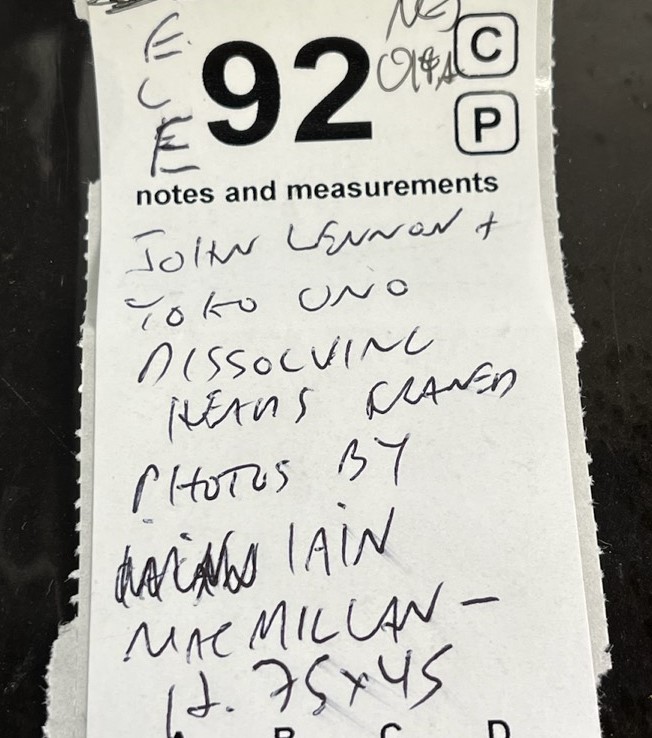 E
C
E
92
C
P
notes and measurements
JOHN LENNON +
YOKO ONO
DISSOLVING
HEADS FRAMED
PHOTOS BY
IAIN
MACMILLAN -
12.75x45
B C D